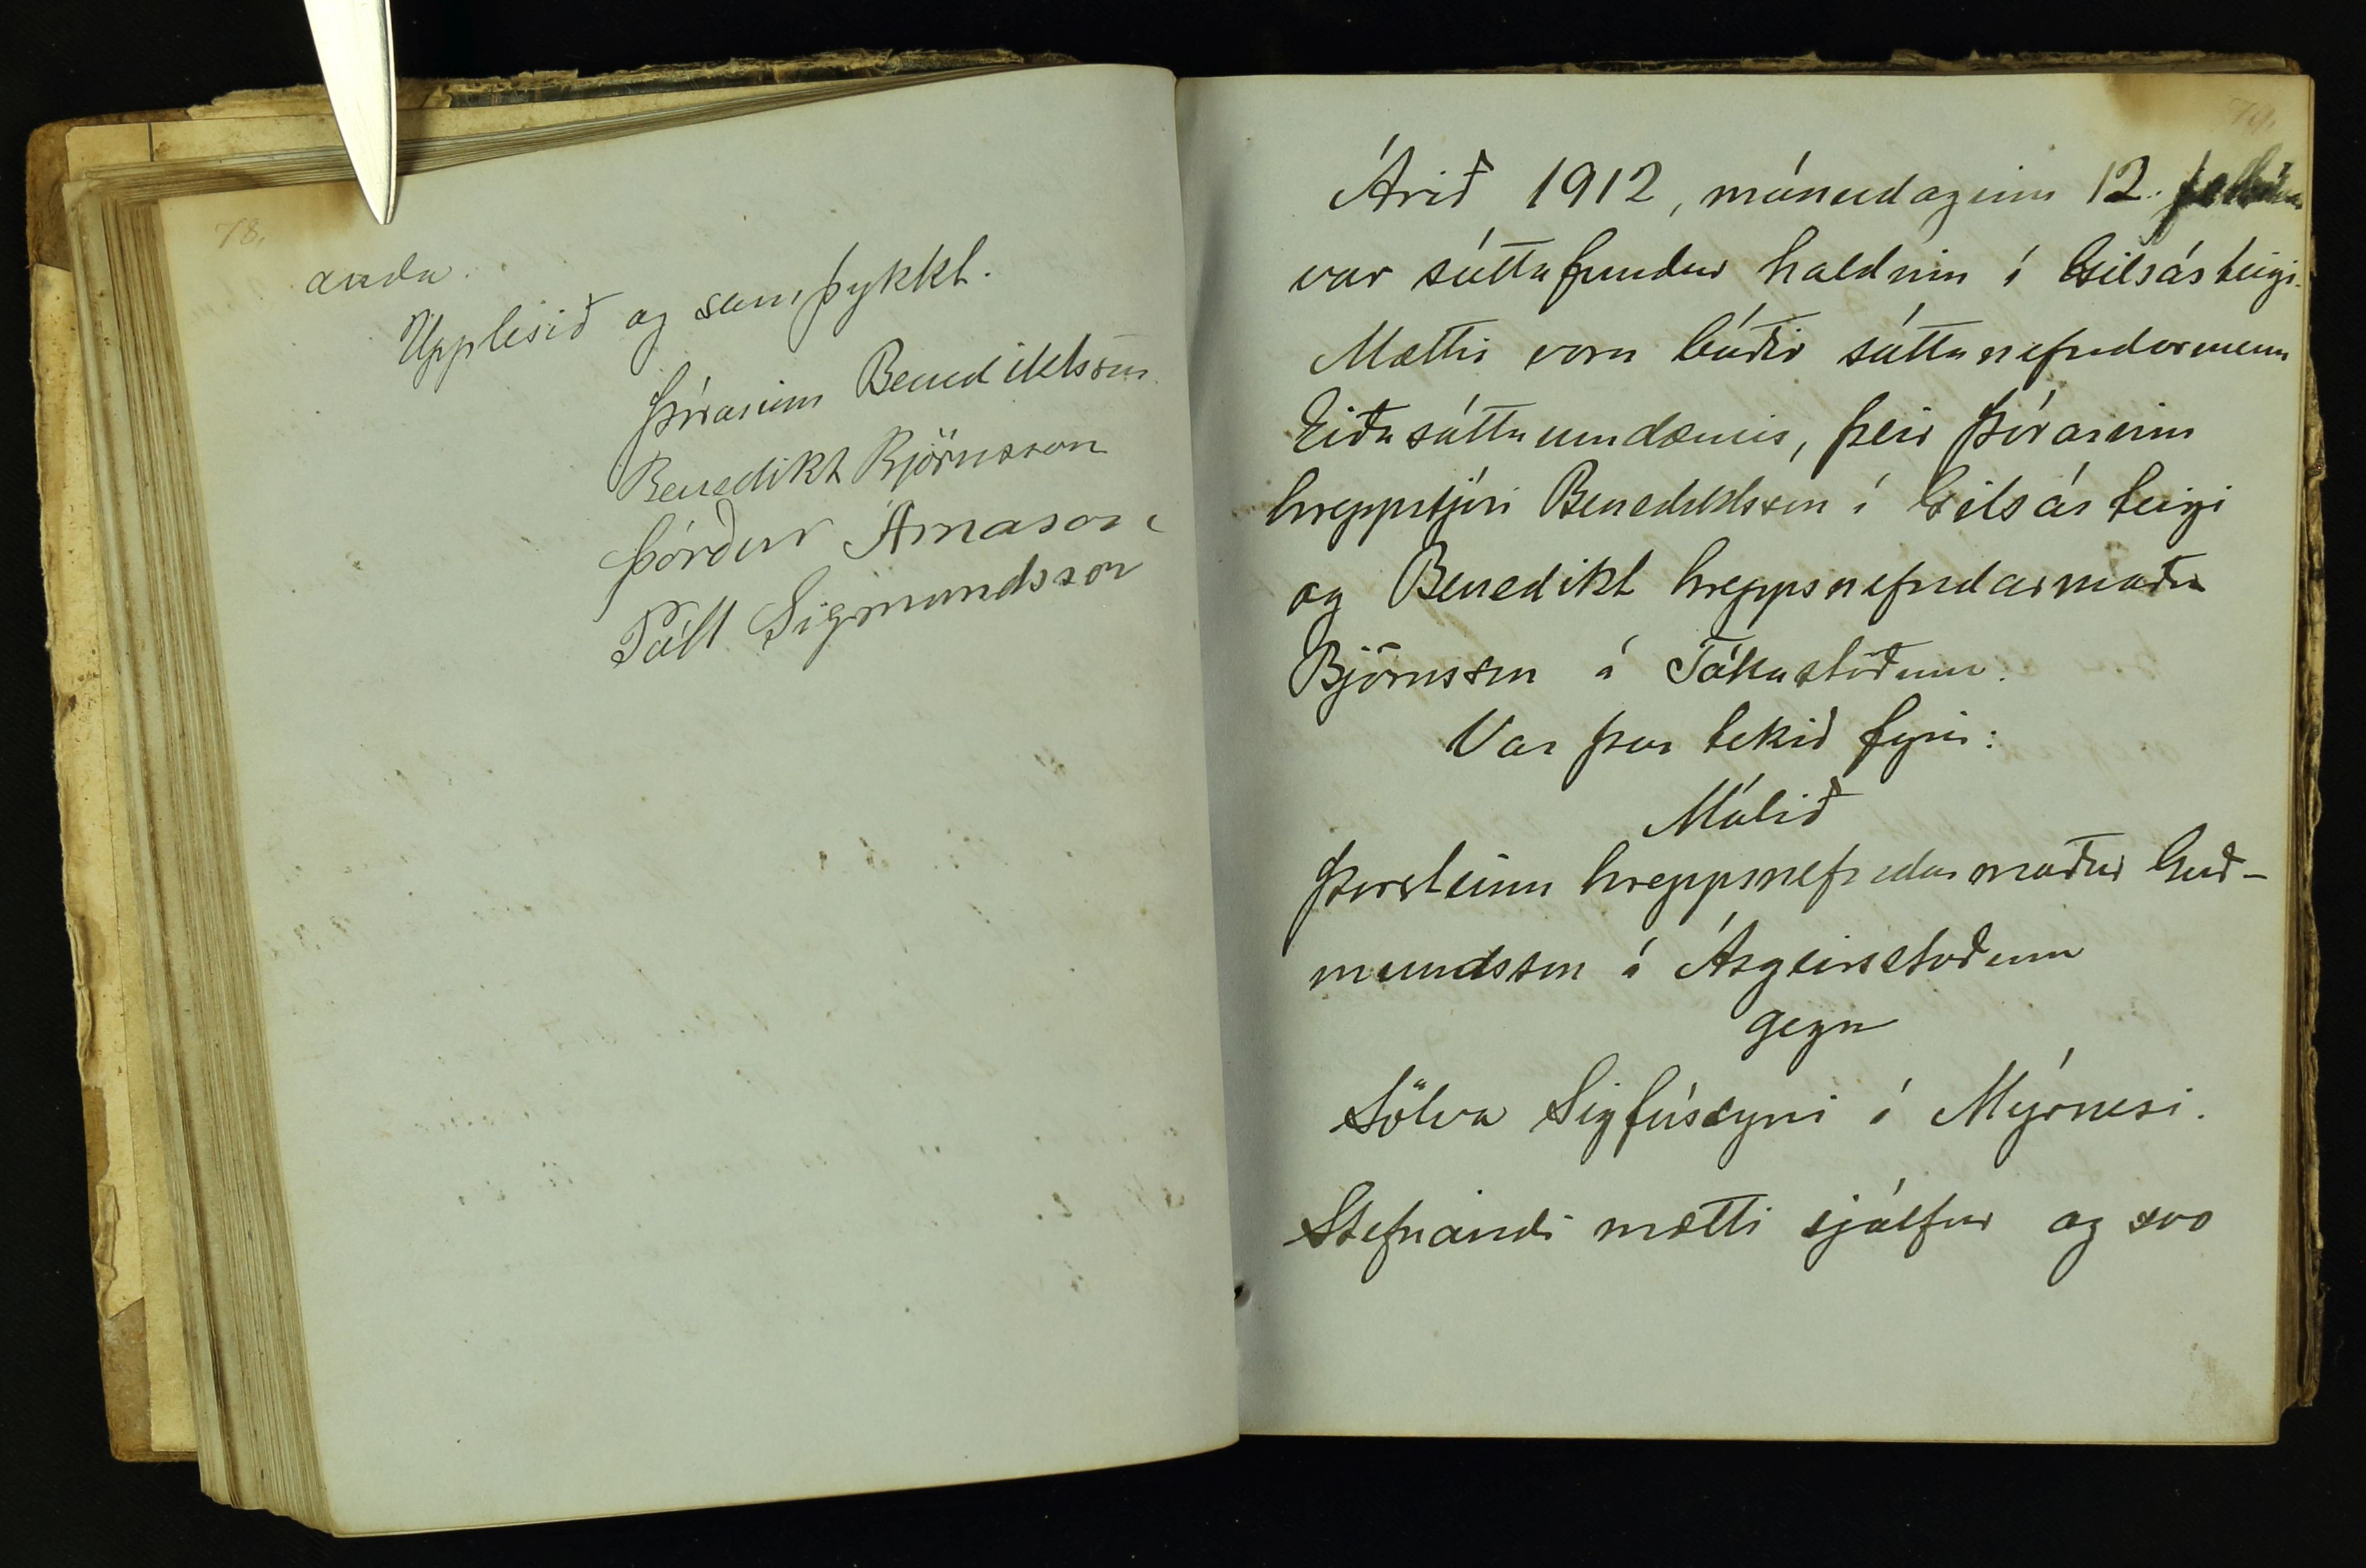 78.
anda.
Upplesið og samþykkt.
Þórarinn Benediktsson
Benedikt Björnsson
Þórður Árnason
Páll Sigmundsson
79.
Árið 1912, mánudaginn 12. febrúar
var sáttafundur haldinn í Gilsárteigi.
Mættir voru báðir sáttanefndarmenn
Eiðasáttaumdæmis, þeir Þórarinn
hreppstjóri Benediktsson í Gilsárteigi
og Benedikt hreppsnefndarmaður
Björnsson á Tókastöðum.
Var þar tekið fyrir:
Málið
Þorsteinn hreppsnefndarmaður Guð-
mundsson á Ásgeirsstöðum
gegn
Sölva Sigfússyni í Mýrnesi.
Stefnandi mætti sjálfur og svo